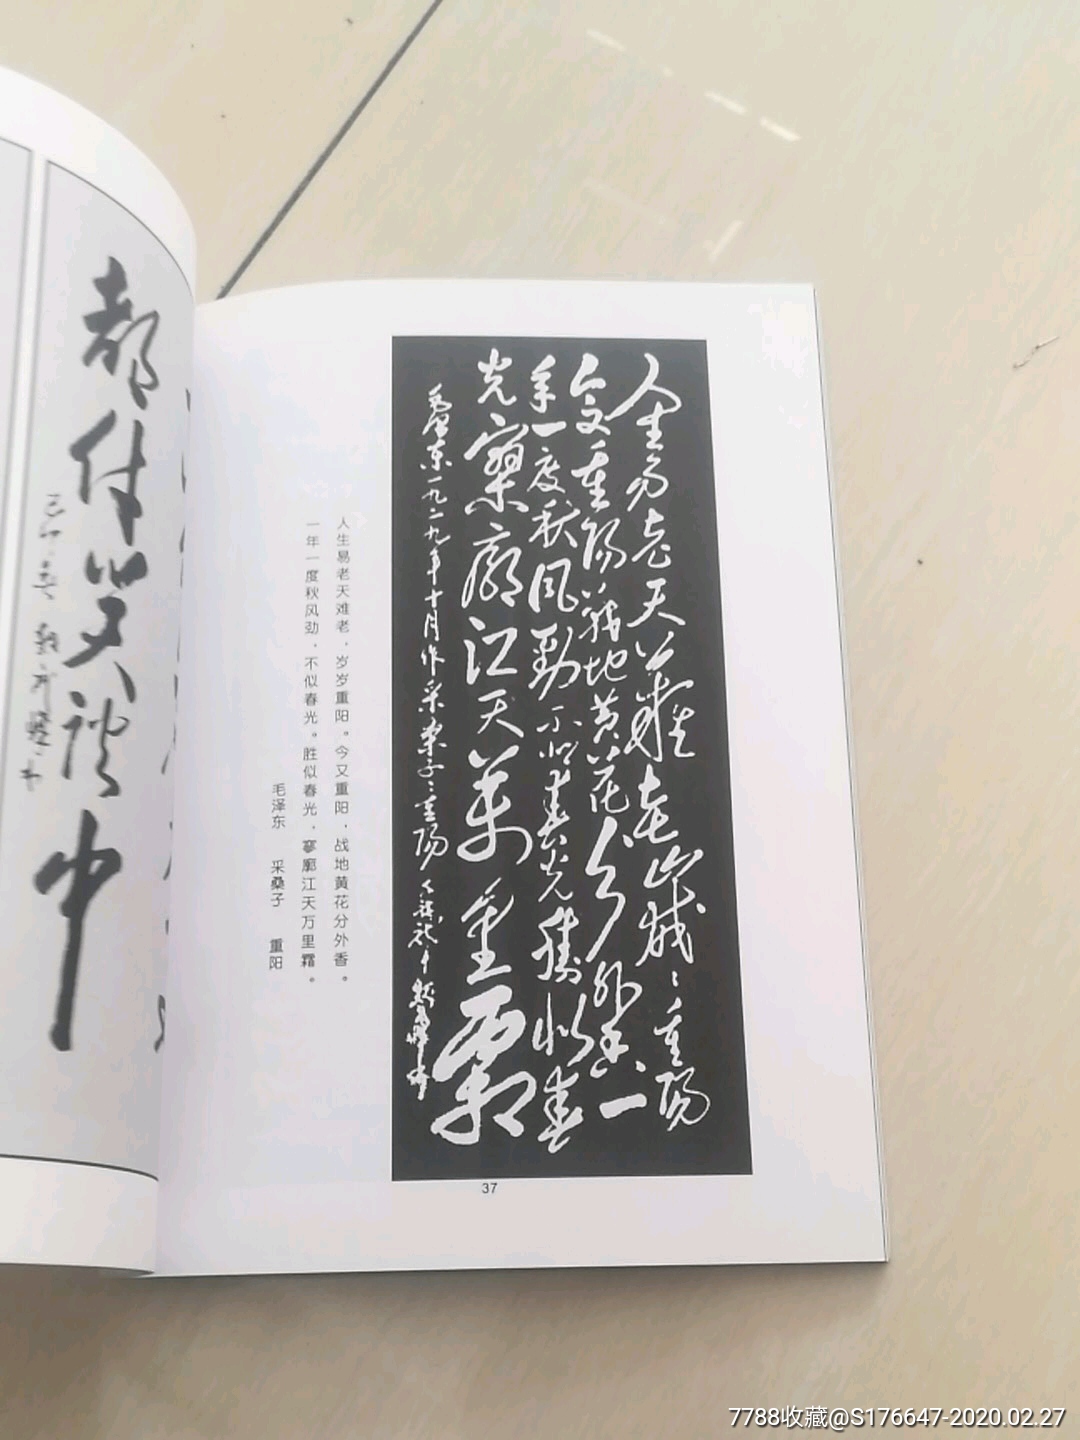 人生易老天難老歲〻重陽
今又重陽戰地黃花分外香一
年一度秋風勁不似春光勝似春
光寥廓江天萬里霜
毛澤東一九二九年十月作采桑子〻重陽
人生易老天难老，岁岁重阳。今又重阳，战地黄花分外香。
一年一度秋风劲，不似春光。胜似春光，寥廓江天万里霜。
毛泽东 采桑子 重阳
37
都付笑谈中
己卯春
7788收藏@S176647-2020.02.27